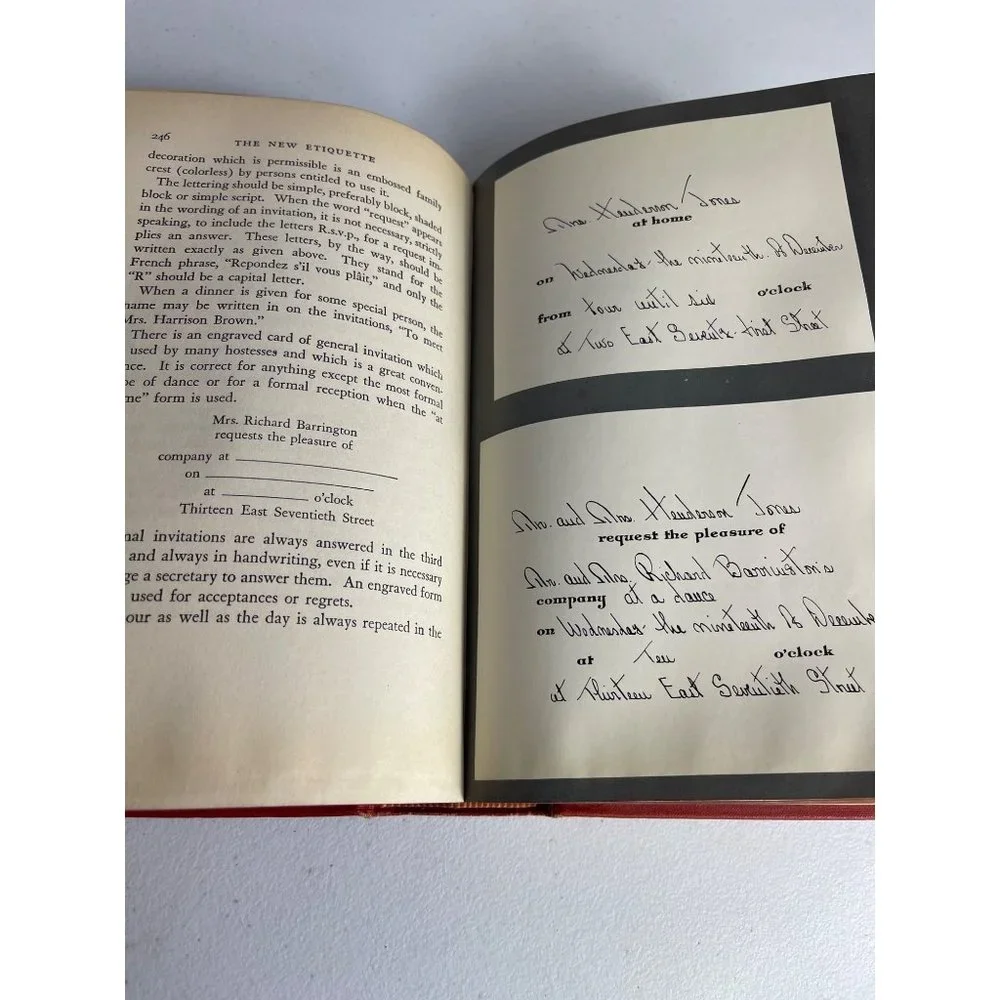 246
THE NEW ETIQUETTE
decoration which is permissible is an embossed family
crest (colorless) by persons entitled to use it.
The lettering should be simple, preferably block, shaded
block or simple script. When the word "request" appears
in the wording of an invitation, it is not necessary, strictly
speaking, to include the letters R.s.v.p., for a request im-
plies an answer. These letters, by the way, should be
written exactly as given above. They stand for the
French phrase, "Repondez s'il vous plâit," and only the
"R" should be a capital letter.
When a dinner is given for some special person, the
name may be written in on the invitations, "To meet
Mrs. Harrison Brown."
There is an engraved card of general invitation which
used by many hostesses and which is a great conven-
nce. It is correct for anything except the most formal
pe of dance or for a formal reception when the "at
me" form is used.
Mrs. Richard Barrington
requests the pleasure of
company at
on
at o'clock
Thirteen East Seventieth Street
nal invitations are always answered in the third
and always in handwriting, even if it is necessary
ge a secretary to answer them. An engraved form
used for acceptances or regrets.
our as well as the day is always repeated in the
Mrs. Henderson Jones
at home
on Wednesday the nineteenth of December
from four until six o'clock
at Two East Seventy-first Street
Mr. and Mrs. Henderson Jones
request the pleasure of
Mr. and Mrs. Richard Barrington's
company at a dance
on Wednesday the nineteenth of Decemb
at Ten o'clock
at Thirteen East Seventieth Street